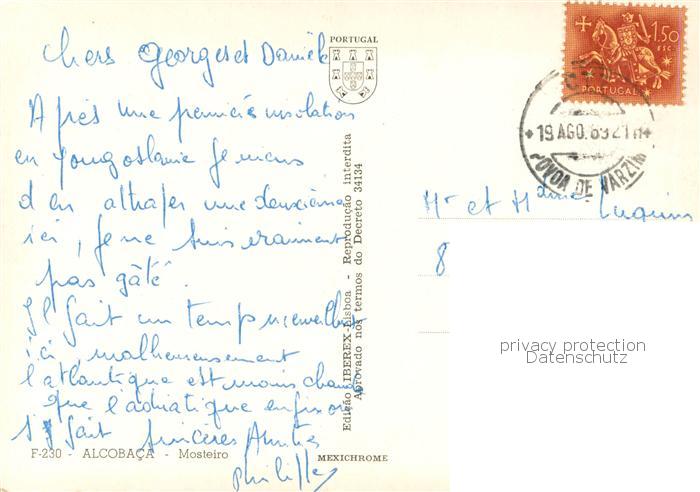 PORTUGAL
chers Georges et Danièle
Après une première insolation
en Yougoslavie je viens
d'en attraper une deuxième
ici, je ne suis vraiment
pas gâté.
Il fait un temps merveilleux
ici, malheureusement
l'atlantique est moins chaud
que l'adriatique enfin on
s'y fait sincères Amitiés
Philippe
F-230 - ALCOBAÇA - Mosteiro
MEXICHROME
Edição LIBEREX-Lisboa - Reprodução interdita
Aprovado nos termos do Decreto 34134
1$50
ESC.
PORTUGAL
19 AGO. 69 21H
POVOA DE VARZIM
Mr et Mdame
8
privacy protection
Datenschutz